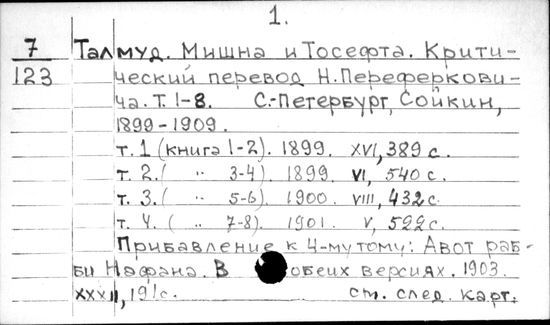 1.
7 Талмуд. Мишна и Тосефта. Крити-
123 ческий перевод Н. Переферкови-
ча. Т. 1-8. С.-Петербург, Сойкин,
1899-1909.
т. 1 (книга 1-2). 1899. XVI, 389 с.
т. 2. ( " 3-4). 1899. VI, 540 с.
т. 3. ( " 5-6). 1900. VIII, 432 с.
т. 4. ( " 7-8). 1901. V, 522 с.
Прибавление к 4-му тому: Авот раб-
би Нафана. В обеих версиях. 1903.
191 с. см. след. карт.